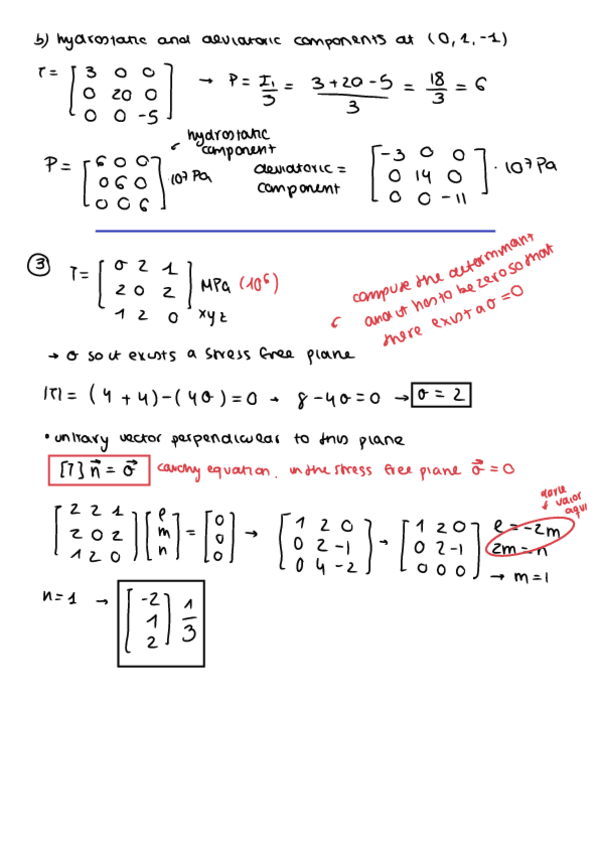 b) hydrostatic and deviatoric components at (0,1,-1)
T = [3 0 0; 0 20 0; 0 0 -5] → P = I₁/3 = (3+20-5)/3 = 18/3 = 6
hydrostatic component
P = [6 0 0; 0 6 0; 0 0 6] · 10⁷ Pa
deviatoric component = [-3 0 0; 0 14 0; 0 0 -11] · 10⁷ Pa
③ T = [σ 2 1; 2 0 2; 1 2 0] xyz MPa (10⁶)
compute the determinant
and it has to be zero so that
there exist a σ = 0
→ σ so it exists a stress free plane
|T| = (4 + 4) - (4σ) = 0 → 8 - 4σ = 0 → σ = 2
• unitary vector perpendicular to this plane
[T] n⃗ = σ⃗ cauchy equation. in the stress free plane σ⃗ = 0
[2 2 1; 2 0 2; 1 2 0] [l; m; n] = [0; 0; 0] → [1 2 0; 0 2 -1; 0 4 -2] → [1 2 0; 0 2 -1; 0 0 0] l = -2m
2m = n
→ m = 1
darle valor aqui
n = 1 → [-2; 1; 2] 1/3